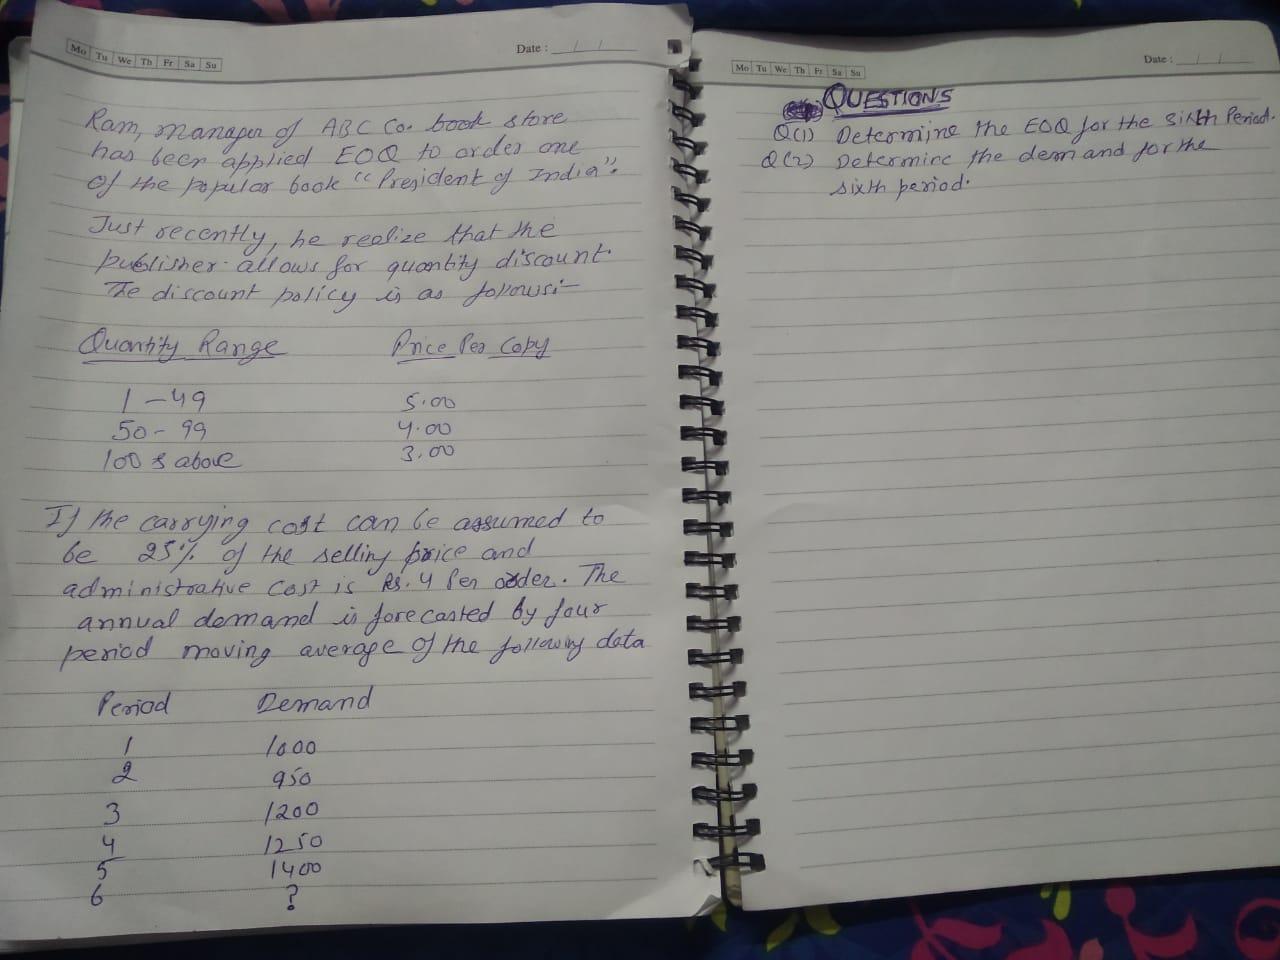 Mo Tu We Th Fr Sa Su
Date : __/__/__
Ram, manager of ABC Co. book store
has been applied EOQ to order one
of the popular book "President of India".
Just recently, he realize that the
publisher allows for quantity discount.
The discount policy is as follows:-
Quantity Range Price Per Copy
1-49 5.00
50-99 4.00
100 & above 3.00
If the carrying cost can be assumed to
be 25% of the selling price and
administrative cost is Rs. 4 Per order. The
annual demand is forecasted by four
period moving average of the following data
Period Demand
1 1000
2 950
3 1200
4 1250
5 1400
6 ?
Mo Tu We Th Fr Sa Su
Date : __/__/__
QUESTIONS
Q(1) Determine the EOQ for the sixth Period.
Q(2) Determine the demand for the
sixth period.